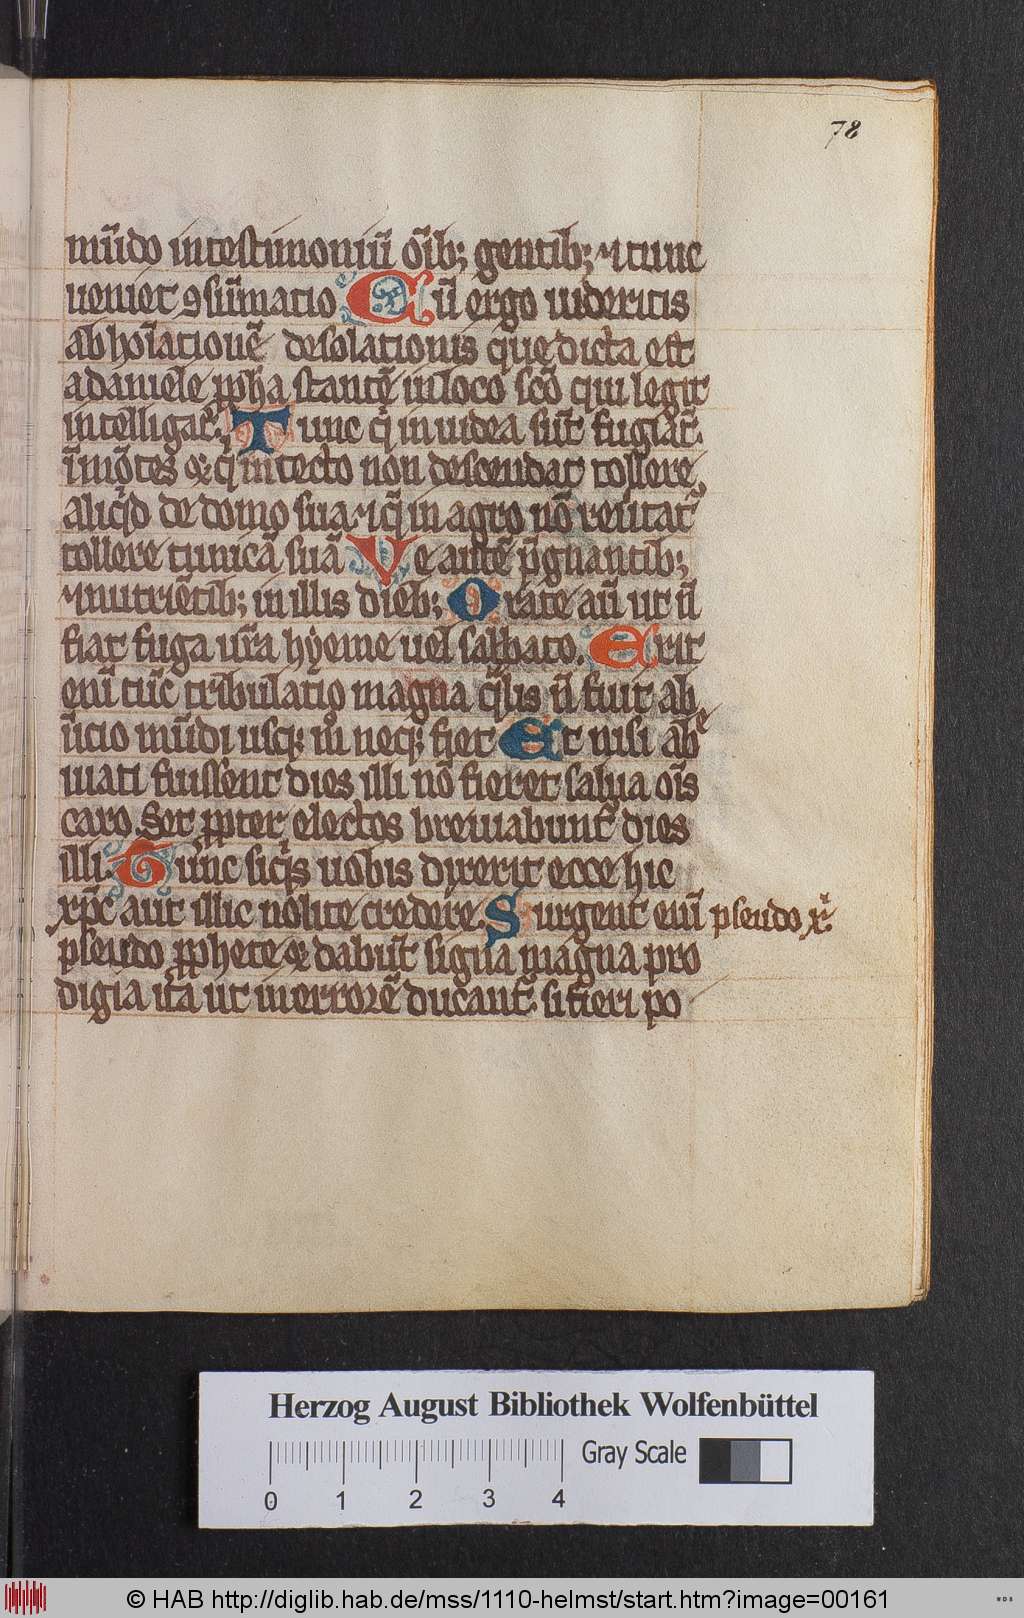 78
mu̅do in testimoniu̅ o̅ib; gentib; ⁊ tunc
ueniet ꝯsu̅matio Cu̅ ergo uideritis
abho̅iatione̅ desolationis que dicta est
a daniele ꝓpha stante̅ in loco sc̅o qui legit
intelligat. Tunc q̅ in iudea su̅t fugia̅t.
i̅ mo̅tes ⁊ q̅ in tecto non descendat tollere
aliq̅d de domo sua ⁊ q̅ in agro no̅ reu̅tat̅
tollere tunica̅ sua̅ Ve aute̅ p̅gnantib;
⁊ nutrie̅tib; in illis dieb; Orate au̅ ut n̅
fiat fuga ur̅a hyeme uel sabbato. Erit
eni̅ tu̅c tribulatio magna q̅lis n̅ fuit ab
i̅itio mu̅di usq; m̅ neq; fiet Et nisi abb̅e
uiati fuissent dies illi no̅ fieret salua o̅is
caro. Set ꝓpter electos breuiabunt̅ dies
illi. Tunc siq̅s uobis dixerit ecce hic
xp̅c aut illic nolite credere. Surgent eni̅ pseudo xi̅
pseudo ꝓphete ⁊ dabu̅t signa magna pro
digia ita ut in errore̅ ducant̅. si fieri po
Herzog August Bibliothek Wolfenbüttel
Gray Scale
0 1 2 3 4
© HAB http://diglib.hab.de/mss/1110-helmst/start.htm?image=00161